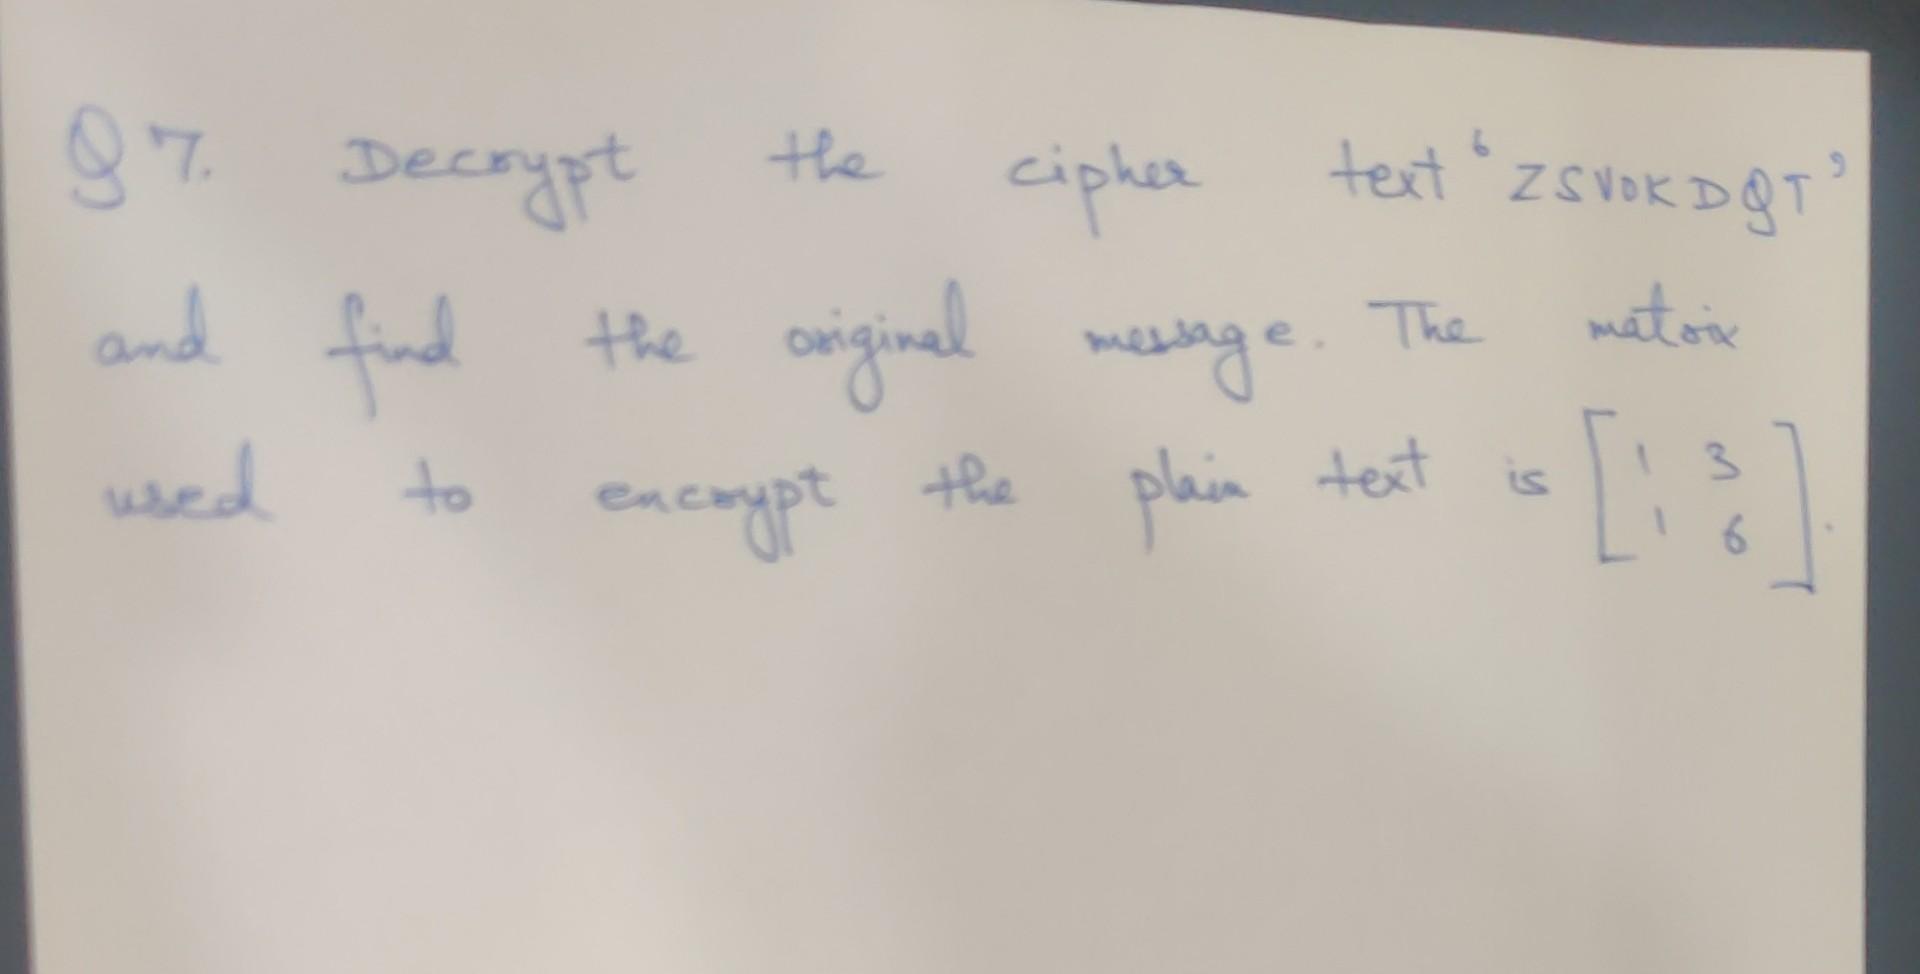 Q7. Decrypt the cipher text 'ZSVOKDQT'
and find the original message. The matrix
used to encrypt the plain text is [1 3
1 6].